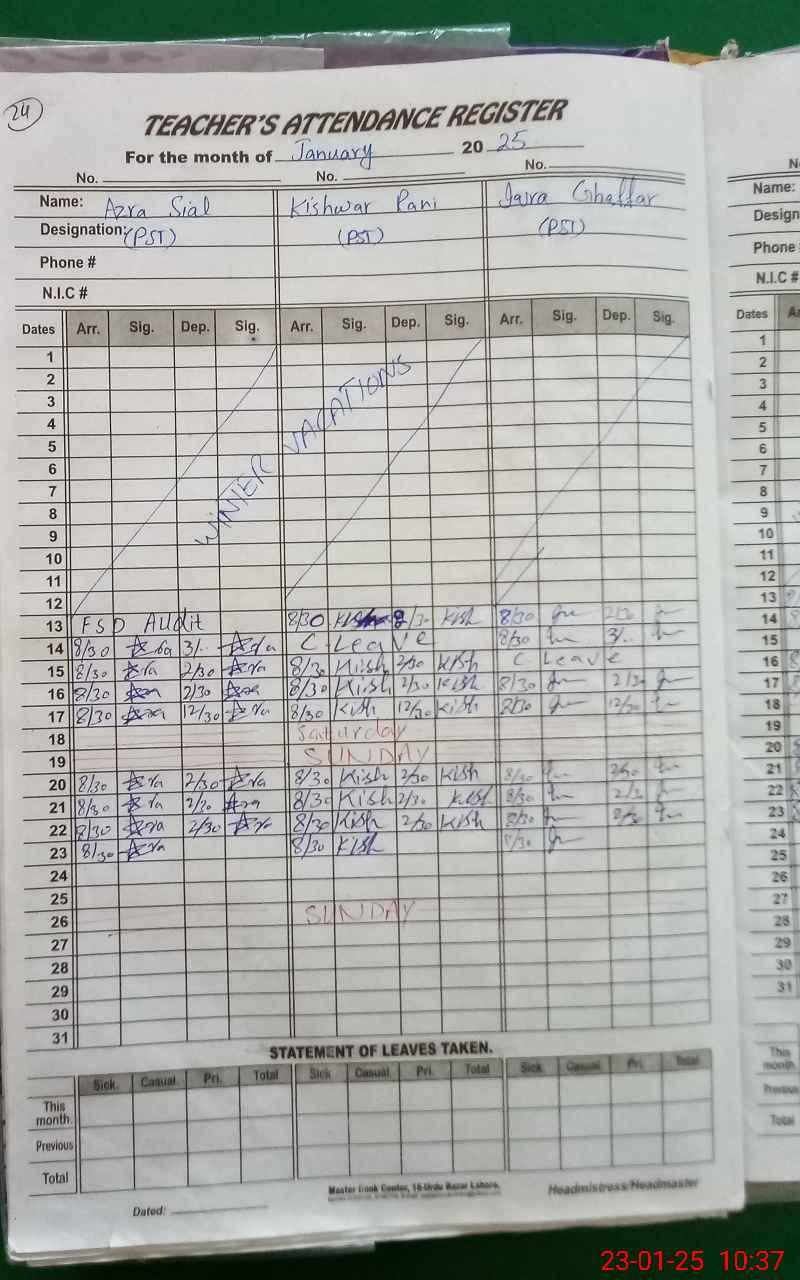 24
TEACHER'S ATTENDANCE REGISTER
For the month of January 20 25
No. No. No.
Name: Azra Sial Kishwar Rani Iqra Ghaffar
Designation: (PST) (PST) (PST)
Phone #
N.I.C #
Dates Arr. Sig. Dep. Sig. Arr. Sig. Dep. Sig. Arr. Sig. Dep. Sig.
1
2
3
4
5
6
7
8
9
10
11
12
WINTER VACATIONS
13 FSD Audit 8/30 Kish 2/30 Kish 8/30 2/30
14 8/30 3/.. C Leave 8/30 3/..
15 8/30 2/30 8/30 Kish 2/30 Kish C Leave
16 8/30 2/30 8/30 Kish 2/30 Kish 8/30 2/30
17 8/30 12/30 8/30 Kish 12/30 Kish 8/30 12/30
18 Saturday
19 SUNDAY
20 8/30 2/30 8/30 Kish 2/30 Kish 8/30 2/30
21 8/30 2/30 8/30 Kish 2/30 Kish 8/30 2/30
22 8/30 2/30 8/30 Kish 2/30 Kish 8/30 2/30
23 8/30 8/30 Kish 8/30
24
25
26 SUNDAY
27
28
29
30
31
STATEMENT OF LEAVES TAKEN.
Sick. Casual. Pri. Total Sick Casual. Pri. Total Sick. Casual. Pri. Total
This month.
Previous
Total
Master Book Center, 16-Urdu Bazar Lahore.
Headmistress/Headmaster
Dated:
Name:
Design
Phone
N.I.C #
Dates
1
2
3
4
5
6
7
8
9
10
11
12
13
14
15
16
17
18
19
20
21
22
23
24
25
26
27
28
29
30
31
This month
Previous
Total
23-01-25 10:37